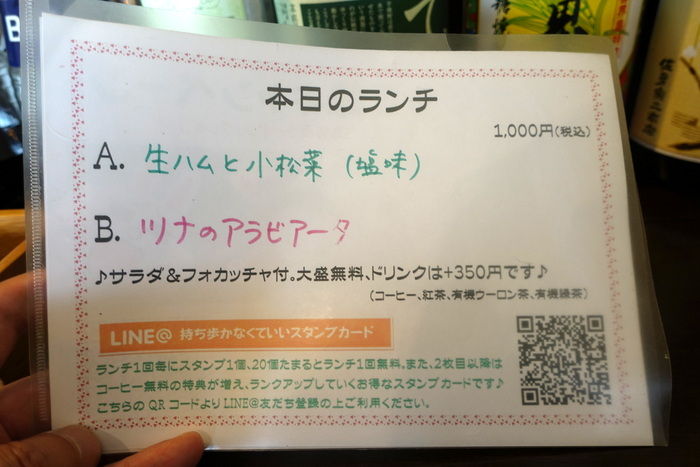 本日のランチ
1,000円(税込)
A. 生ハムと小松菜(塩味)
B. ツナのアラビアータ
♪サラダ&フォカッチャ付。大盛無料、ドリンクは+350円です♪
(コーヒー、紅茶、有機ウーロン茶、有機緑茶)
LINE@ 持ち歩かなくていいスタンプカード
ランチ1回毎にスタンプ1個、20個たまるとランチ1回無料。また、2枚目以降は
コーヒー無料の特典が増え、ランクアップしていくお得なスタンプカードです♪
こちらのQRコードよりLINE@友だち登録の上ご利用ください。